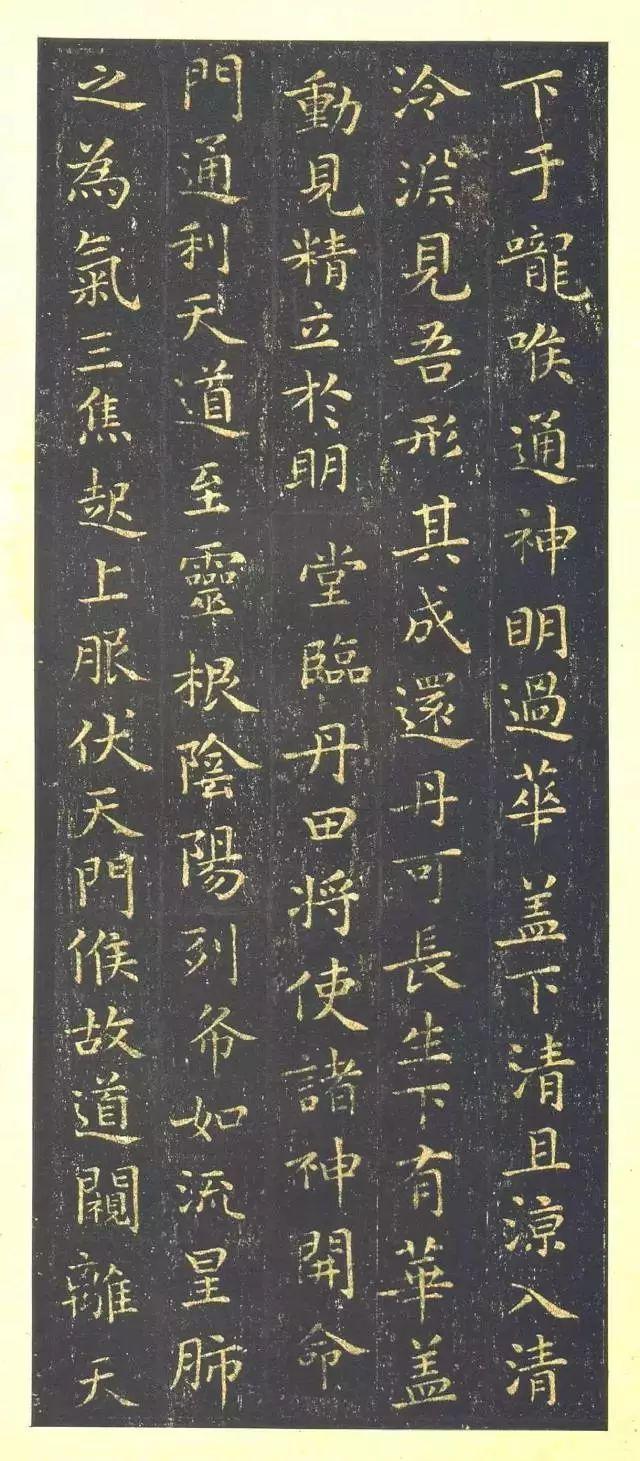 下于嚨喉通神明過華盖下清且涼入清
泠渊見吾形其成還丹可長生下有華盖
動見精立於明堂臨丹田将使諸神開命
門通利天道至靈根陰陽列布如流星肺
之為氣三焦起上服伏天門候故道闚離天